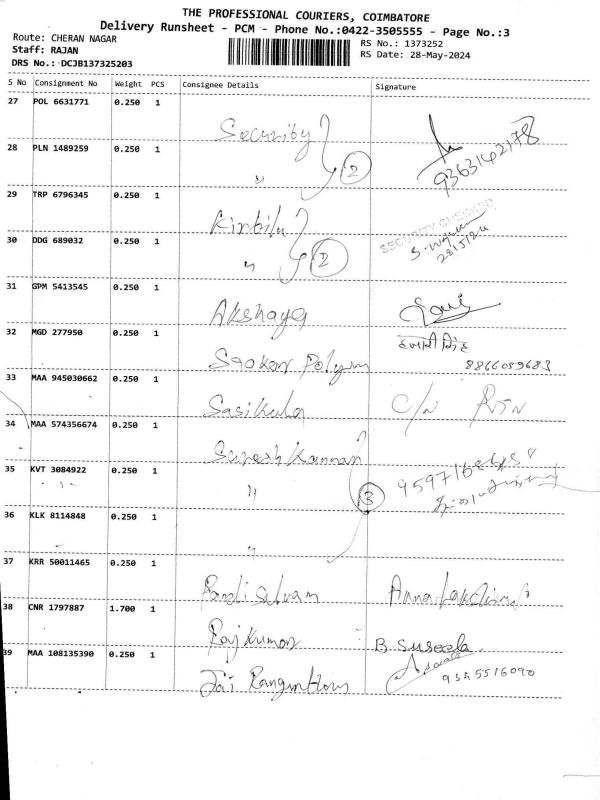 THE PROFESSIONAL COURIERS, COIMBATORE
Delivery Runsheet - PCM - Phone No.:0422-3505555 - Page No.:3
Route: CHERAN NAGAR
RS No.: 1373252
Staff: RAJAN
RS Date: 28-May-2024
DRS No.: DCJB137325203
S No Consignment No Weight PCS Consignee Details Signature
27 POL 6631771 0.250 1 Security
28 PLN 1489259 0.250 1 " 2 9363142178
29 TRP 6796345 0.250 1
SECURITY CHECKED
30 DDG 689032 0.250 1 " 2 28/5/24
31 GPM 5413545 0.250 1 Akshaya
32 MGD 277950 0.250 1 8866059683
33 MAA 945030662 0.250 1 Sasikala C/N RTN
34 MAA 574356674 0.250 1 Suresh Kannan
35 KVT 3084922 0.250 1 " 3
36 KLK 8114848 0.250 1 "
37 KRR 50011465 0.250 1
38 CNR 1797887 1.700 1 Raj Kumar B. Suseela
39 MAA 108135390 0.250 1 Jai 9345516090